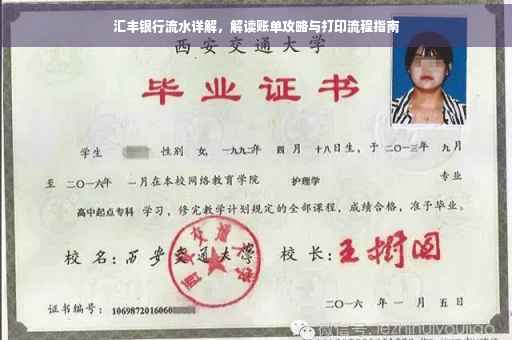 汇丰银行流水详解，解读账单攻略与打印流程指南
西安交通大学
毕业证书
学生 性别 女，一九九二年 四月 十八日生，于二〇一三年 九月
至 二〇一六年 一月在本校网络教育学院 护理学 专业
高中起点专科 学习，修完教学计划规定的全部课程，成绩合格，准予毕业。
校名：西安交通大学 校长：王树国
西安交通大学
证书编号：1069872016060
二〇一六年一月五日
微信号:jezhihuiyoujiao